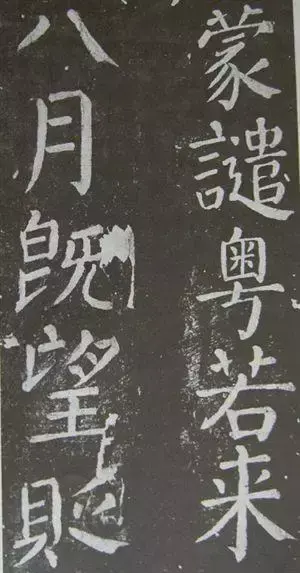 蒙譴粤若来
八月既望則